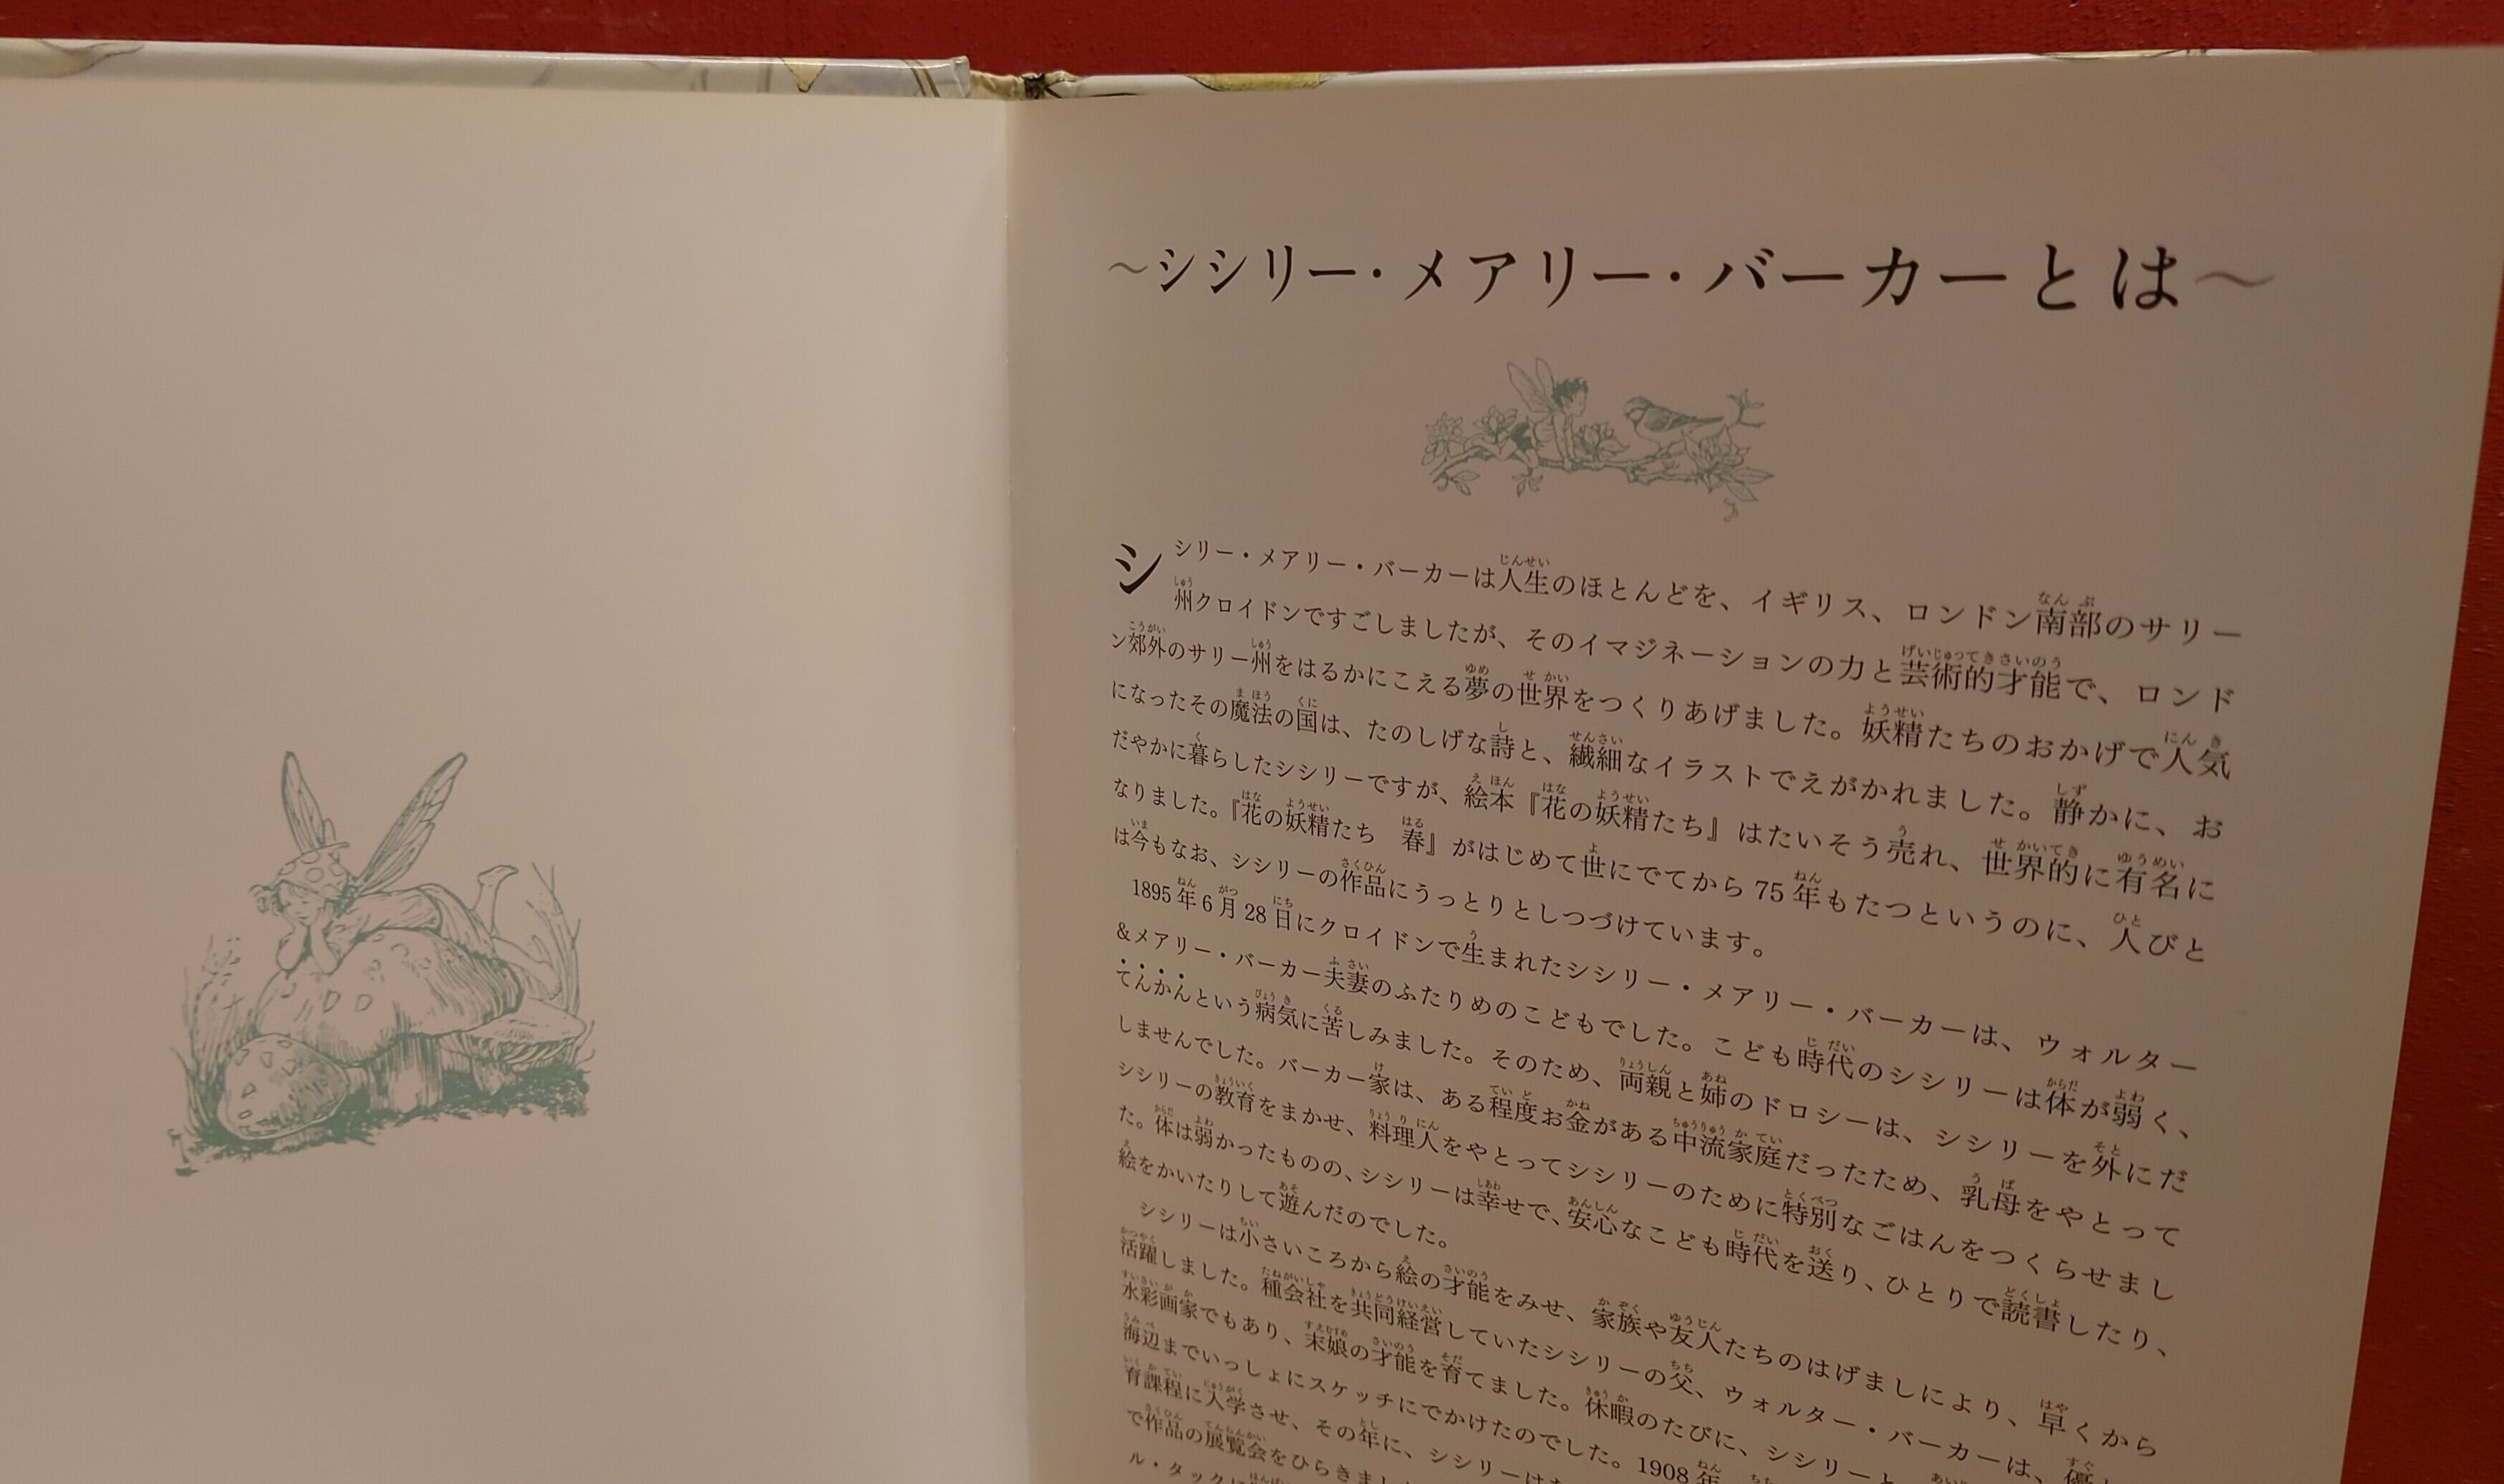 ～シシリー・メアリー・バーカーとは～
シシリー・メアリー・バーカーは人生のほとんどを、イギリス、ロンドン南部のサリー
州クロイドンですごしましたが、そのイマジネーションの力と芸術的才能で、ロンド
ン郊外のサリー州をはるかにこえる夢の世界をつくりあげました。妖精たちのおかげで人気
になったその魔法の国は、たのしげな詩と、繊細なイラストでえがかれました。静かに、お
だやかに暮らしたシシリーですが、絵本『花の妖精たち』はたいそう売れ、世界的に有名に
なりました。『花の妖精たち 春』がはじめて世にでてから75年もたつというのに、人びと
は今もなお、シシリーの作品にうっとりとしつづけています。
1895年6月28日にクロイドンで生まれたシシリー・メアリー・バーカーは、ウォルター
&メアリー・バーカー夫妻のふたりめのこどもでした。こども時代のシシリーは体が弱く、
てんかんという病気に苦しみました。そのため、両親と姉のドロシーは、シシリーを外にだ
しませんでした。バーカー家は、ある程度お金がある中流家庭だったため、乳母をやとって
シシリーの教育をまかせ、料理人をやとってシシリーのために特別なごはんをつくらせまし
た。体は弱かったものの、シシリーは幸せで、安心なこども時代を送り、ひとりで読書したり、
絵をかいたりして遊んだのでした。
シシリーは小さいころから絵の才能をみせ、家族や友人たちのはげましにより、早くから
活躍しました。種会社を共同経営していたシシリーの父、ウォルター・バーカーは、優
水彩画家でもあり、末娘の才能を育てました。休暇のたびに、シシリーと
海辺までいっしょにスケッチにでかけたのでした。1908年
育課程に入学させ、その年に、シシリーは
で作品の展覧会をひらきまし
ル・タックに